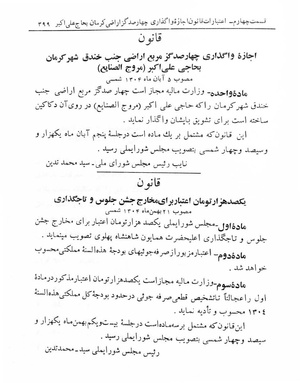 قسمت چهارم - اعتبارات قانون اجازه واگذاری چهارصد گز اراضی کرمان بحاج علی اکبر ۳۹۹
قانون
اجازه واگذاری چهارصد گز مربع اراضی جنب خندق شهر کرمان
بحاجی علی اکبر (مروج الصنایع)
مصوب ۵ آبان ماه ۱۳۰۴ شمسی
ماده واحده - وزارت مالیه مجاز است چهار صد گز مربع اراضی جنب
خندق شهر کرمان را که حاجی علی اکبر (مروج الصنایع) در روی آن دکاکین
ساخته است برای تشویق بایشان واگذار نماید.
این قانون که مشتمل بر یك ماده است در جلسهٔ پنجم آبان ماه یکهزار و
سیصد وچهار شمسی بتصویب مجلس شورایملی رسید.
نایب رئیس مجلس شورای ملی - سید محمد تدین
قانون
یکصد هزار تومان اعتبار برای مخارج جشن جلوس و تاجگذاری
مصوب ۲۱ بهمن ماه ۱۳۰۴ شمسی
ماده اول - مجلس شورایملی یکصد هزار تومان اعتبار برای مخارج جشن
جلوس و تاجگذاری اعلیحضرت همایون شاهنشاه پهلوی تصویب مینماید.
ماده دوم - اعتبار مزبور از صرفه جوئیهای بودجهٔ هذه السنهٔ مملکتی محسوب
خواهد شد.
ماده سوم - وزارت مالیه مجاز است یکصد هزار تومان اعتبار مذکور در مادهٔ
اول را عجالتاً تا تشخیص قطعی صرفه جوئی در حدود بودجهٔ کل مملکتی هذه السنهٔ
۱۳۰۴ محسوب و تأدیه نماید.
این قانون که مشتمل بر سه ماده است در جلسهٔ بیست ویکم بهمن ماه یکهزار و
سیصد و چهار شمسی بتصویب مجلس شورایملی رسید.
رئیس مجلس شورایملی - سید محمد تدین